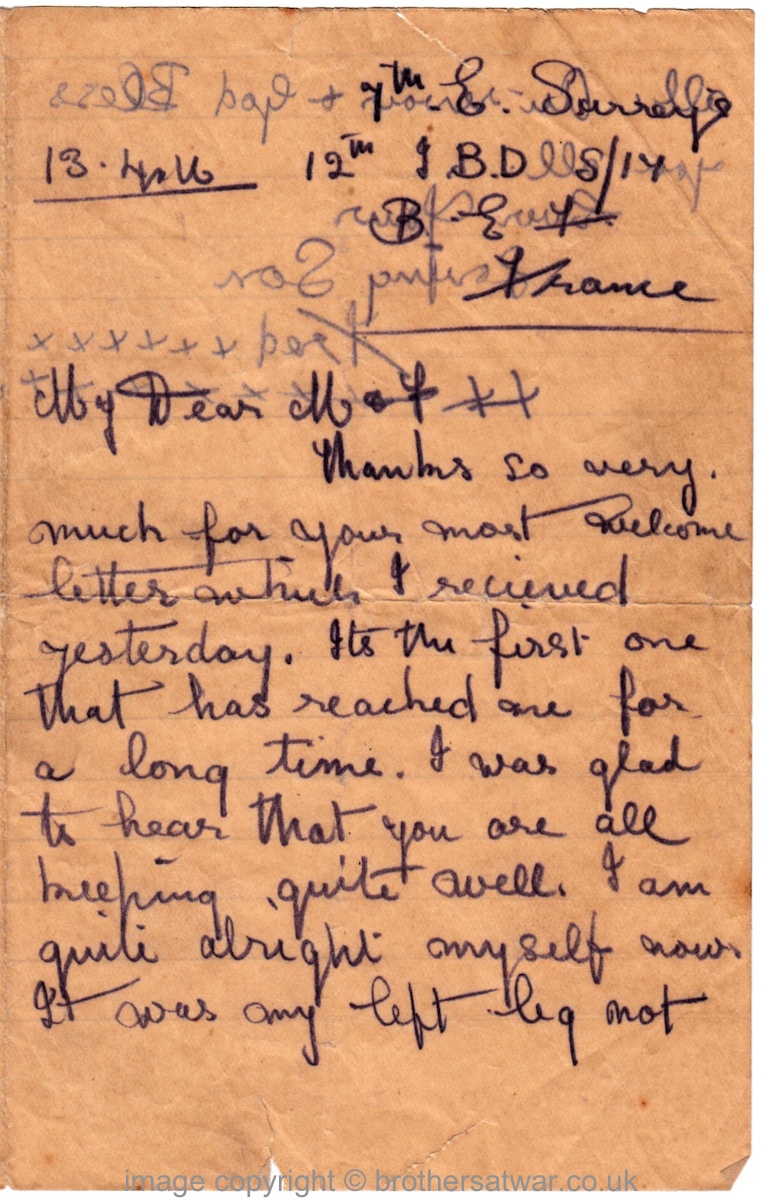 7th E. Surreys
13.4.16 12th I.B.D S/17
B.E.F.
France
My Dear M & F
Thanks so very.
much for your most welcome
letter which I recieved
yesterday. Its the first one
that has reached me for
a long time. I was glad
to hear that you are all
keeping quite well. I am
quite alright myself now.
It was my left leg not
image copyright © brothersatwar.co.uk